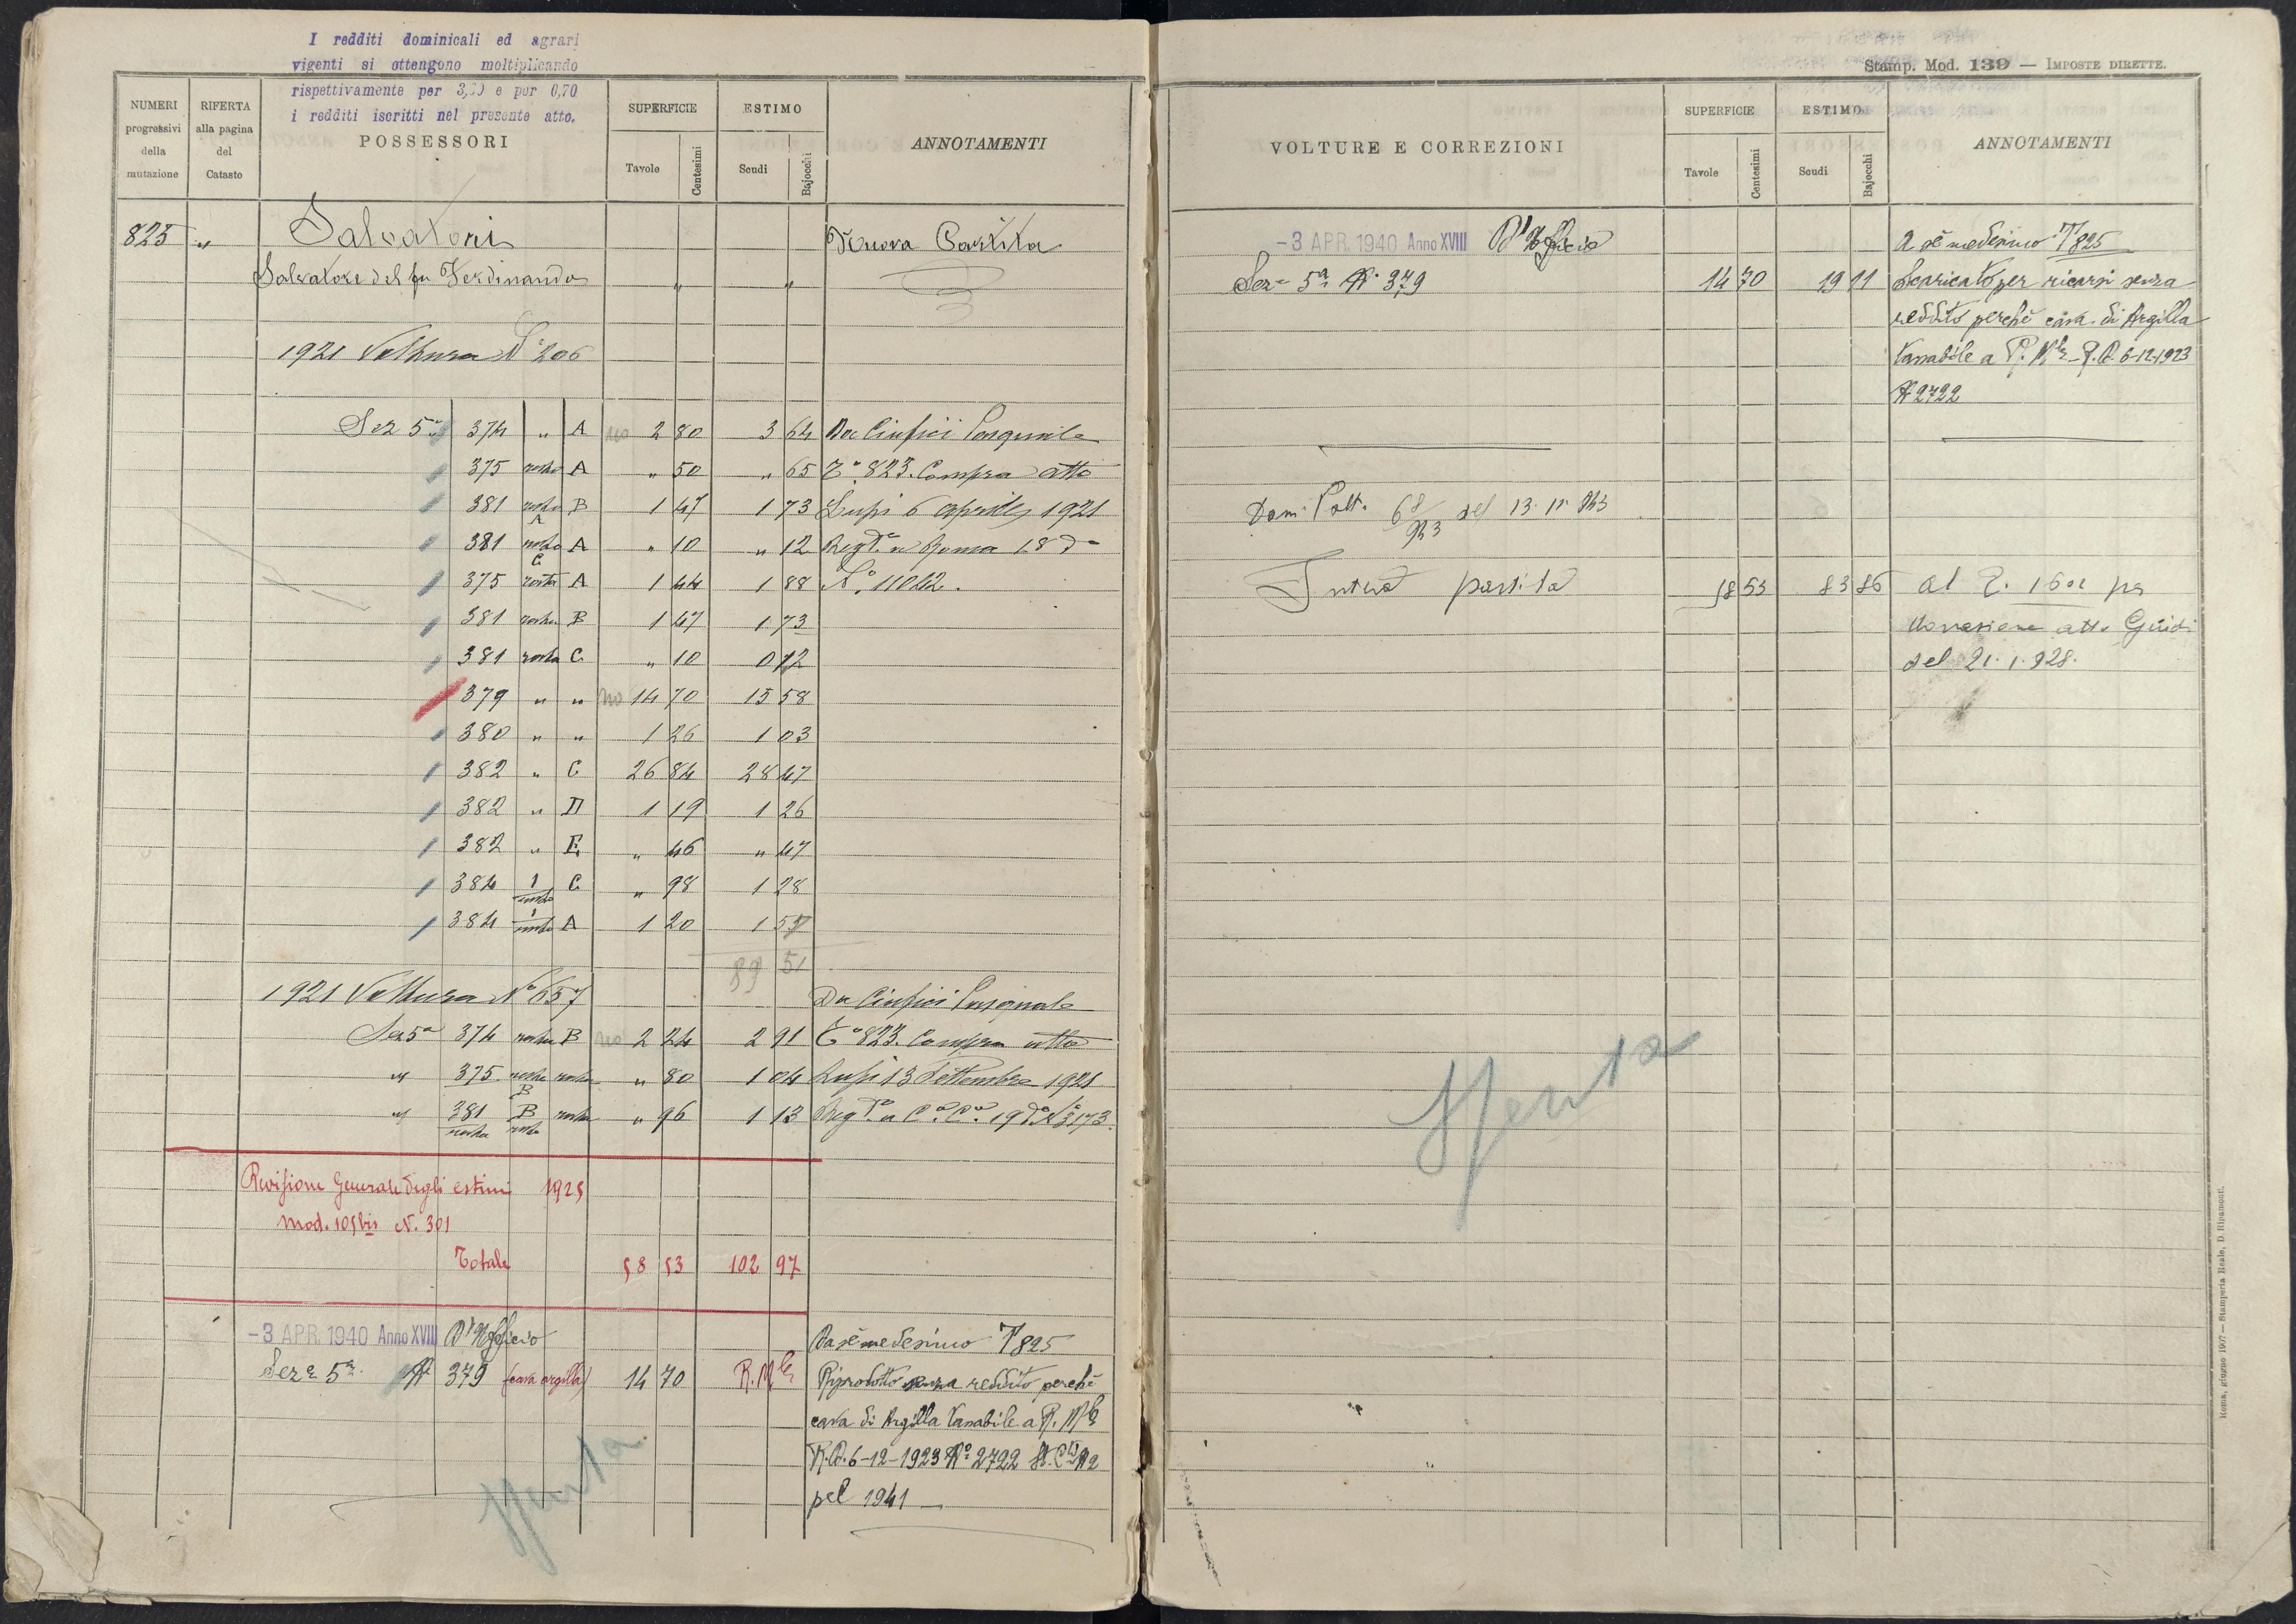 I redditi dominicali ed agrari
vigenti si ottengono moltiplicando
rispettivamente per 3,50 e per 0,70
i redditi iscritti nel presente atto.
NUMERI progressivi della mutazione
RIFERTA alla pagina del Catasto
POSSESSORI
SUPERFICIE
Tavole Centesimi
ESTIMO
Scudi Bajocchi
ANNOTAMENTI
825 " Salvatori Nuova Partita
Salvatore del fu Ferdinando " "
1921 Volthura N° 206
Sez 5a 374 " A no 2 80 3 64 Da Ciufici Pasquale
375 resto A " 50 " 65 T° 823. Compra atto
381 resto A B 1 47 1 73 Lupi 6 aprile 1921
381 resto C A " 10 " 12 Regto a Roma 18 do
375 resto A 1 44 1 88 N° 11042.
381 resto B 1 47 1 73
381 resto C " 10 0 12
379 " " no 14 70 15 58
380 " " 1 26 1 03
382 " C 26 84 28 47
382 " D 1 19 1 26
382 " E " 46 " 47
384 1/resto C " 98 1 28
384 1/resto A 1 20 1 57
89 51
1921 Volthura N° 657 Da Ciufici Pasquale
Sez 5a 374 resto B no 2 24 2 91 T° 823. Compra atto
" 375 resto B resto " 80 1 04 Lupi 13 Settembre 1921
" 381/resto B/resto resto " 96 1 13 Regto a Ca. Ca. 19 do N° 3173.
Revisione Generale degli estimi 1925
mod. 105bis N. 301
Totale 58 53 102 97
-3 APR. 1940 Anno XVIII D'Ufficio Da sè medesimo T 825
Seze 5a N 379 (cava argilla) 14 70 R. Mle Riprodotto senza reddito perchè
cava di Argilla tassabile a R. Mle
R.D. 6-12-1923 N° 2722
pel 1941
Sfenta
Stamp. Mod. 139 — IMPOSTE DIRETTE.
VOLTURE E CORREZIONI
SUPERFICIE
Tavole Centesimi
ESTIMO
Scudi Bajocchi
ANNOTAMENTI
-3 APR. 1940 Anno XVIII D'Ufficio A sè medesimo T 825
Seze 5a N. 379 14 70 19 11 Scaricato per ricarsi senza
reddito perchè cava di Argilla
tassabile a R. Mle - R.D. 6-12-1923
N 2722
Dom. Volt. 68/943 del 13.11.943
Intera partita 58 53 83 86 al T.
atto Guidi
del 21.1.928.
Sfenta
Roma, giugno 1907 — Stamperia Reale, D. Ripamonti.